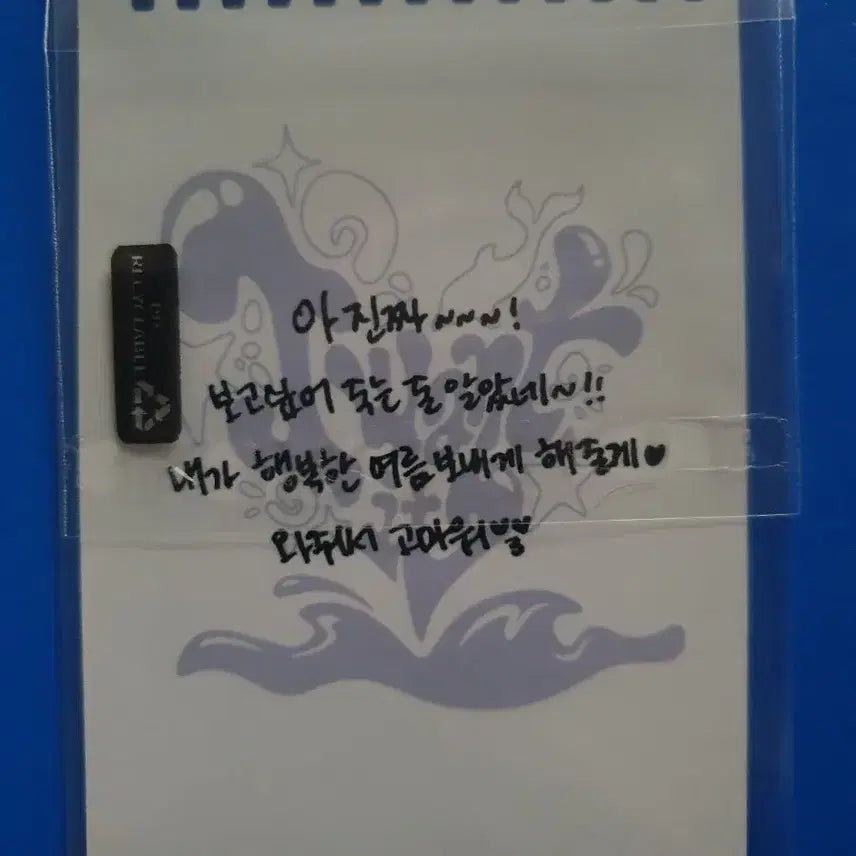 아 진짜~~~!
보고싶어 죽는 줄 알았네~!!
내가 행복한 여름 보내게 해줄게♥
와줘서 고마워♥